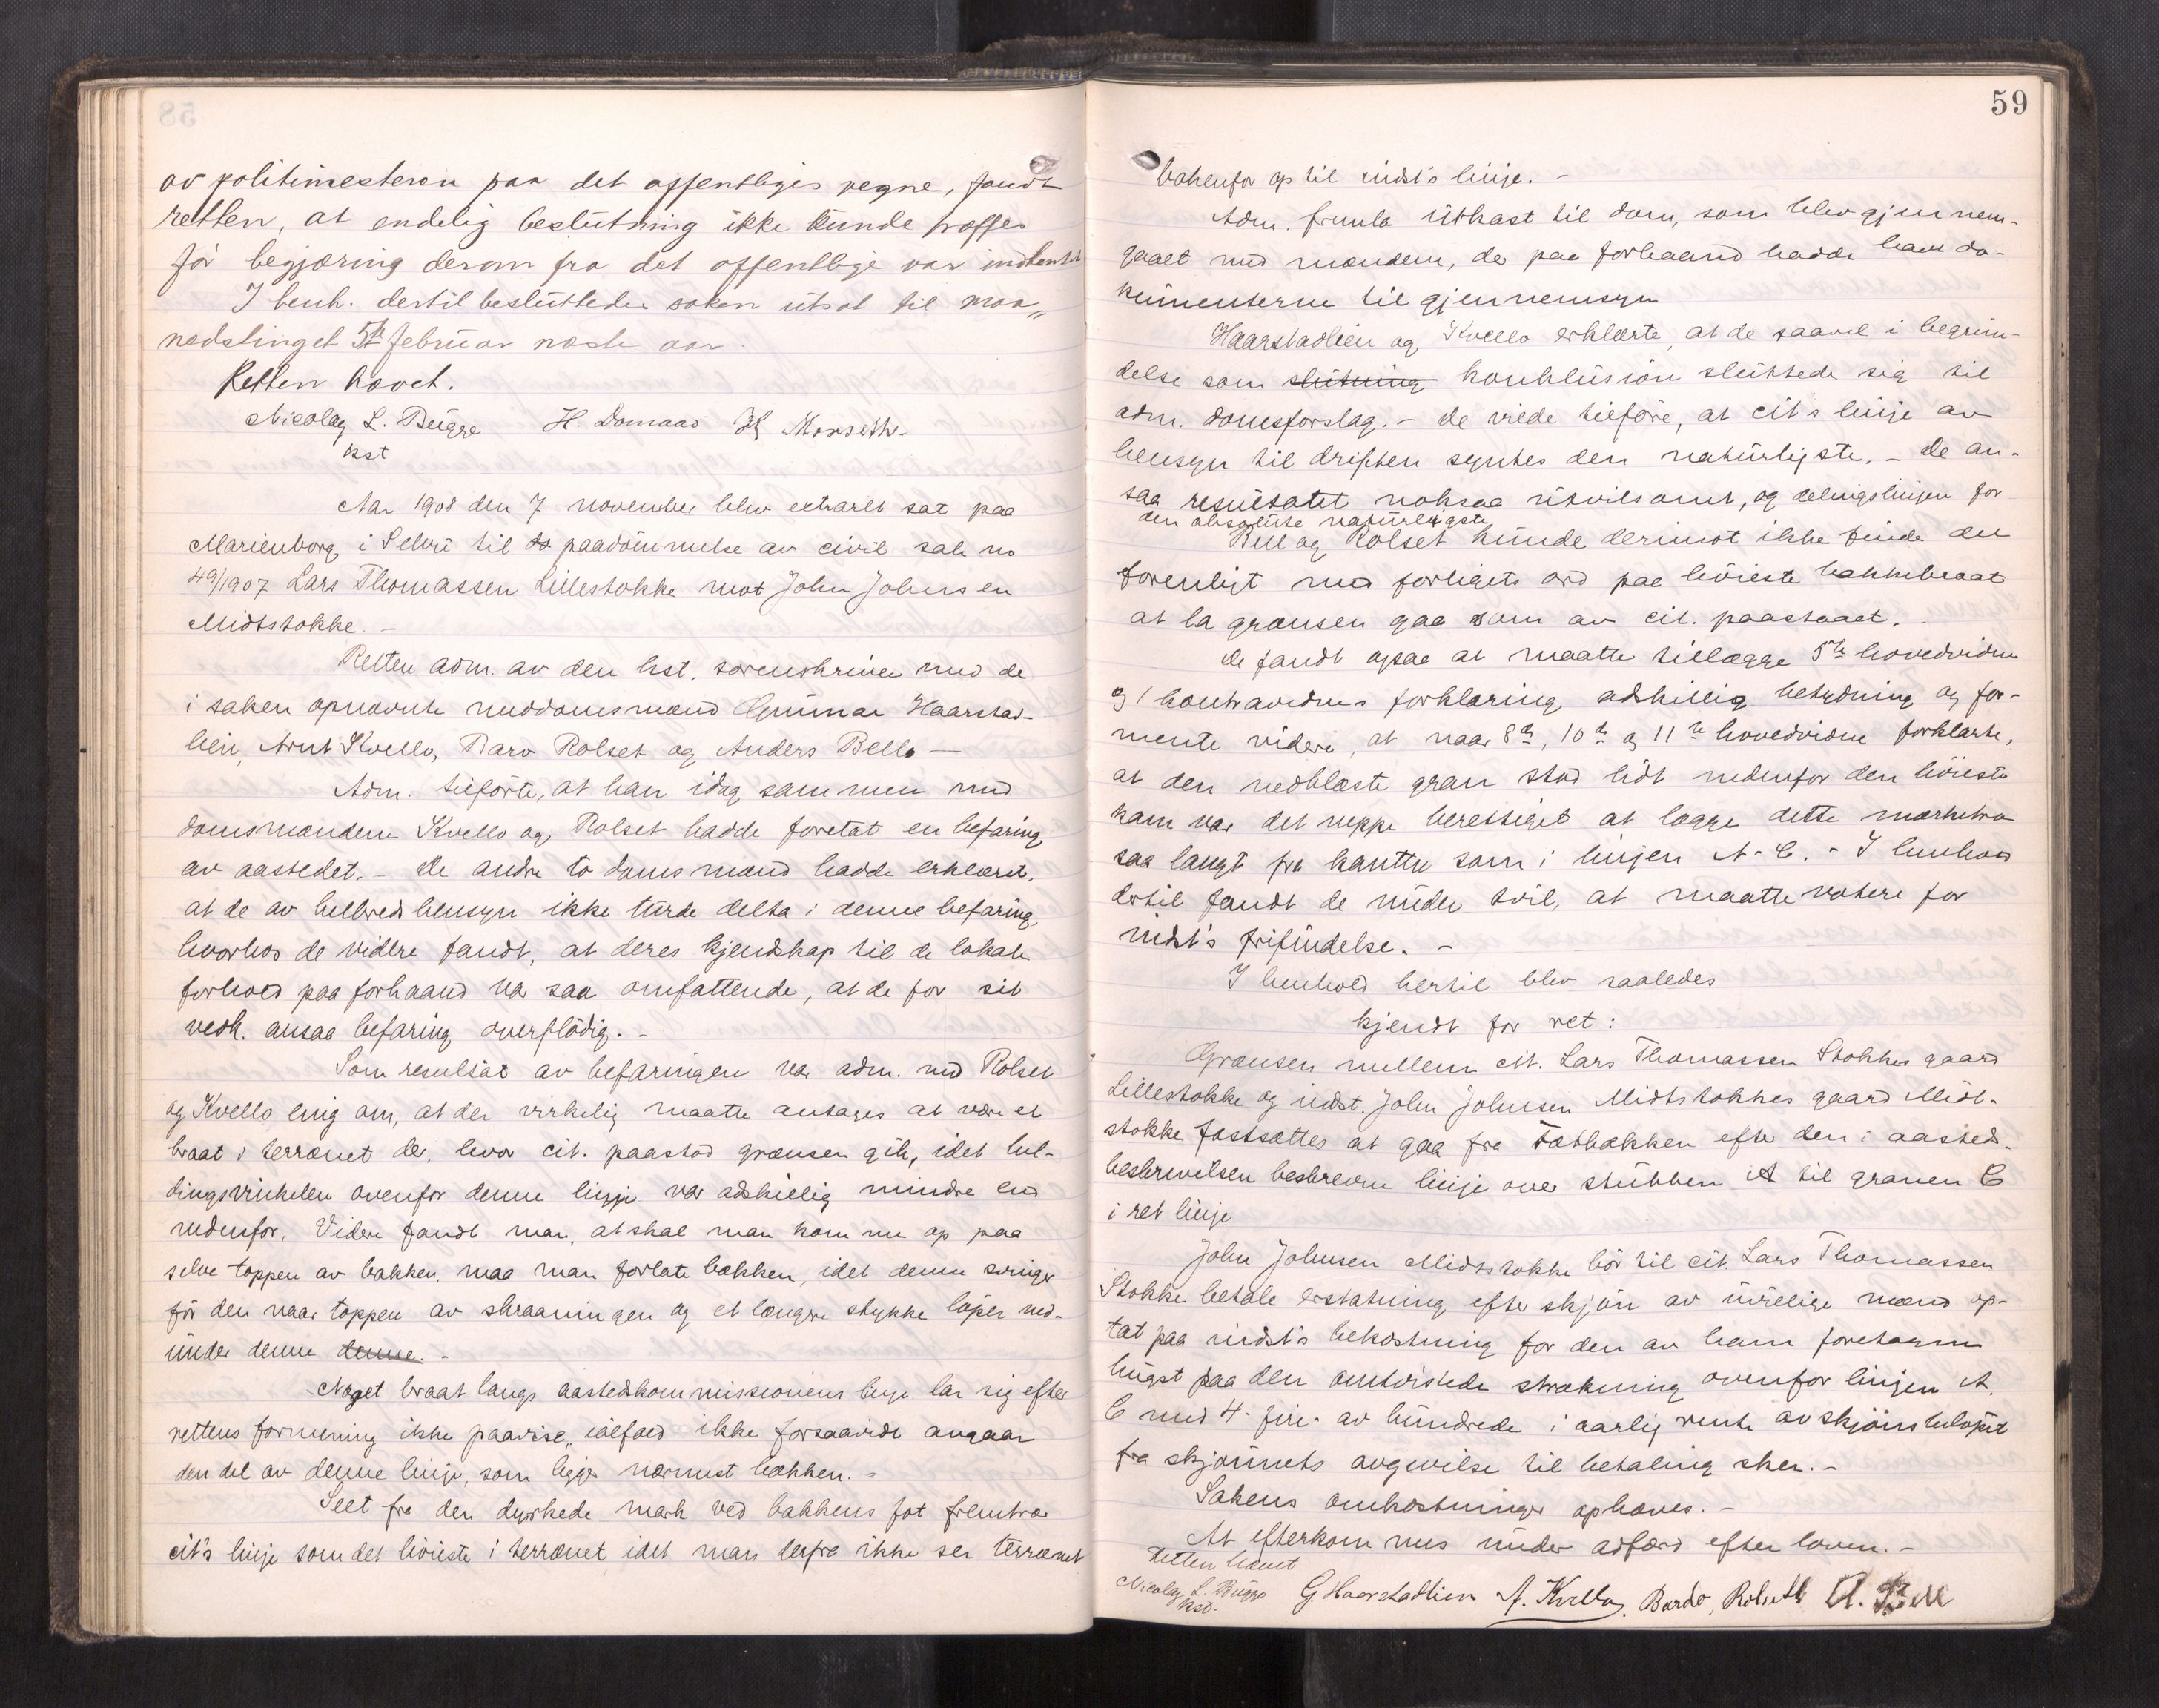 av politimesteren paa det offentliges vegne, fandt
retten, at endelig beslutning ikke kunde træffes
før begjæring derom fra det offentlige var indhentet
I henh. dertil besluttedes saken utsat til maa„
nedstinget 5te februar næste aar.
Retten hævet.
Nicolay L. Bugge H. Domaas Morseth
kst
Aar 1908 den 7 november blev extraret sat paa
Marienborg i Selbu til paadømmelse av civil sak no
49/1907 Lars Thomassen Lillestokke mot John Johnsen
Midtstokke. -
Retten adm. av den kst. sorenskriver med de
i saken opnævnte meddomsmænd Gunnar Haarstad-
lien, Arnt Kvello, Bardo Rolset og Anders Bell. —
Adm. tilførte, at han idag sammen med
domsmændene Kvello og Rolset hadde foretat en befaring
av aastedet. - De andre to domsmænd hadde erklært,
at de av helbredshensyn ikke turde delta i denne befaring,
hvorhos de videre fandt, at deres kjendskap til de lokale
forhold paa forhaand var saa omfattende, at de for sit
vedk. ansaa befaring overflødig. -
Som resultat av befaringen var adm. med Rolset
og Kvello enig om, at der virkelig maatte antages at være et
braat i terrænet der, hvor cit. paastod grænsen gik, idet hel-
dingsvinkelen ovenfor denne linje var adskillig mindre end
nedenfor. Videre fandt man, at skal man komme op paa
selve toppen av bakken, maa man forlate bækken, idet denne svinger
før den naar toppen av skraaningen og et længre stykke løper ned-
under denne denne. -
Noget braat langs aastedskommissionens linje lar sig efter
rettens formening ikke paavise, ialfald ikke forsaavidt angaar
den del av denne linje, som ligger nærmest bækken. -
Seet fra den dyrkede mark ved bakkens fot fremtrær
cit's linje som det høieste i terrænet idet man derfra ikke ser terrænet
59
bakenfor op til indst's linje. -
Adm. fremla utkast til dom, som blev gjennem-
gaaet med mændene, der paa forhaand hadde havt do-
kumenterne til gjennemsyn
Haarstadlien og Kvello erklærte, at de saavel i begrun-
delse som slutning konklusion sluttede sig til
adm. domsforslag. - De vilde tilføre, at cit's linje av
hensyn til driften syntes den naturligste. - De an-
saa resultatet noksaa utvilsomt, og delingslinjen for
den absolute naturligste
Bell og Rolset kunde derimot ikke finde det
forenligt med forligets ord paa høieste bakkebraat
at la grænsen gaa som av cit. paastaaet.
De fandt ogsaa at maatte tillægge 5te hovedvidne
og 1 kontravidnes forklaring adskillig betydning og for-
mente videre, at naar 8de, 10de og 11te hovedvidne forklarte,
at den nedblæste gran stod lidt nedenfor den høieste
kam var det neppe berettiget at lægge dette merketræ
saa langt fra kanten som i linjen A-C. - I henhold
dertil fandt de under tvil, at maatte votere for
indst's frifindelse. -
I henhold hertil blev saaledes
kjendt for ret:
Grænsen mellem cit. Lars Thomassen Stokkes gaard
Lillestokke og indst. John Johnsen Midtstokkes gaard Midt-
stokke fastsættes at gaa fra Tætbækken efter den i aasteds-
beskrivelsen beskrevne linje over stubben A til granen C
i ret linje
John Johnsen Midtstokke bør til cit. Lars Thomassen
Stokke betale erstatning efter skjøn av uvillige mænd op-
tat paa indst's bekostning for den av ham foretagne
hugst paa den omtvistede strækning ovenfor linjen A.
C med 4 - fire - av hundrede i aarlig rente av skjønsbeløpet
fra skjønnets avgivelse til betaling sker. -
Sakens omkostninger ophæves. -
At efterkommes under adfærd efter loven. -
Retten hævet
Nicolay L. Bugge G. Haarstadlien A. Kvello, Bardo, Rolseth A. Bell
kst.